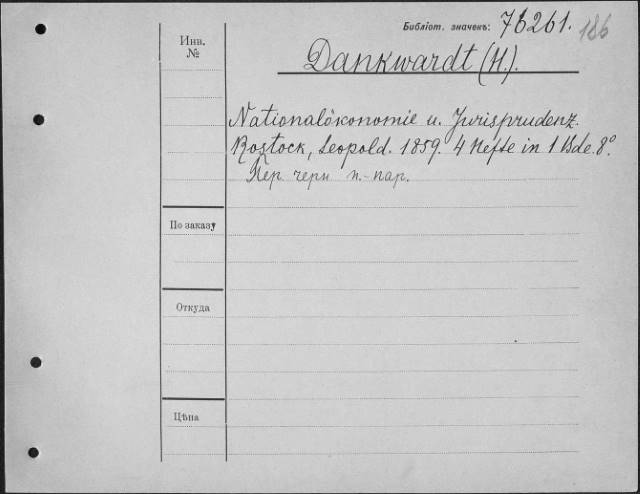 Библіот. значекъ: 76261. 186
Инв.
№
Dankwardt (H.).
Nationalökonomie u. Jurisprudenz.
Rostock, Leopold. 1859. 4 Hefte in 1 Bde. 8°.
Пер. черн п.-пар.
По заказу
Откуда
Цѣна